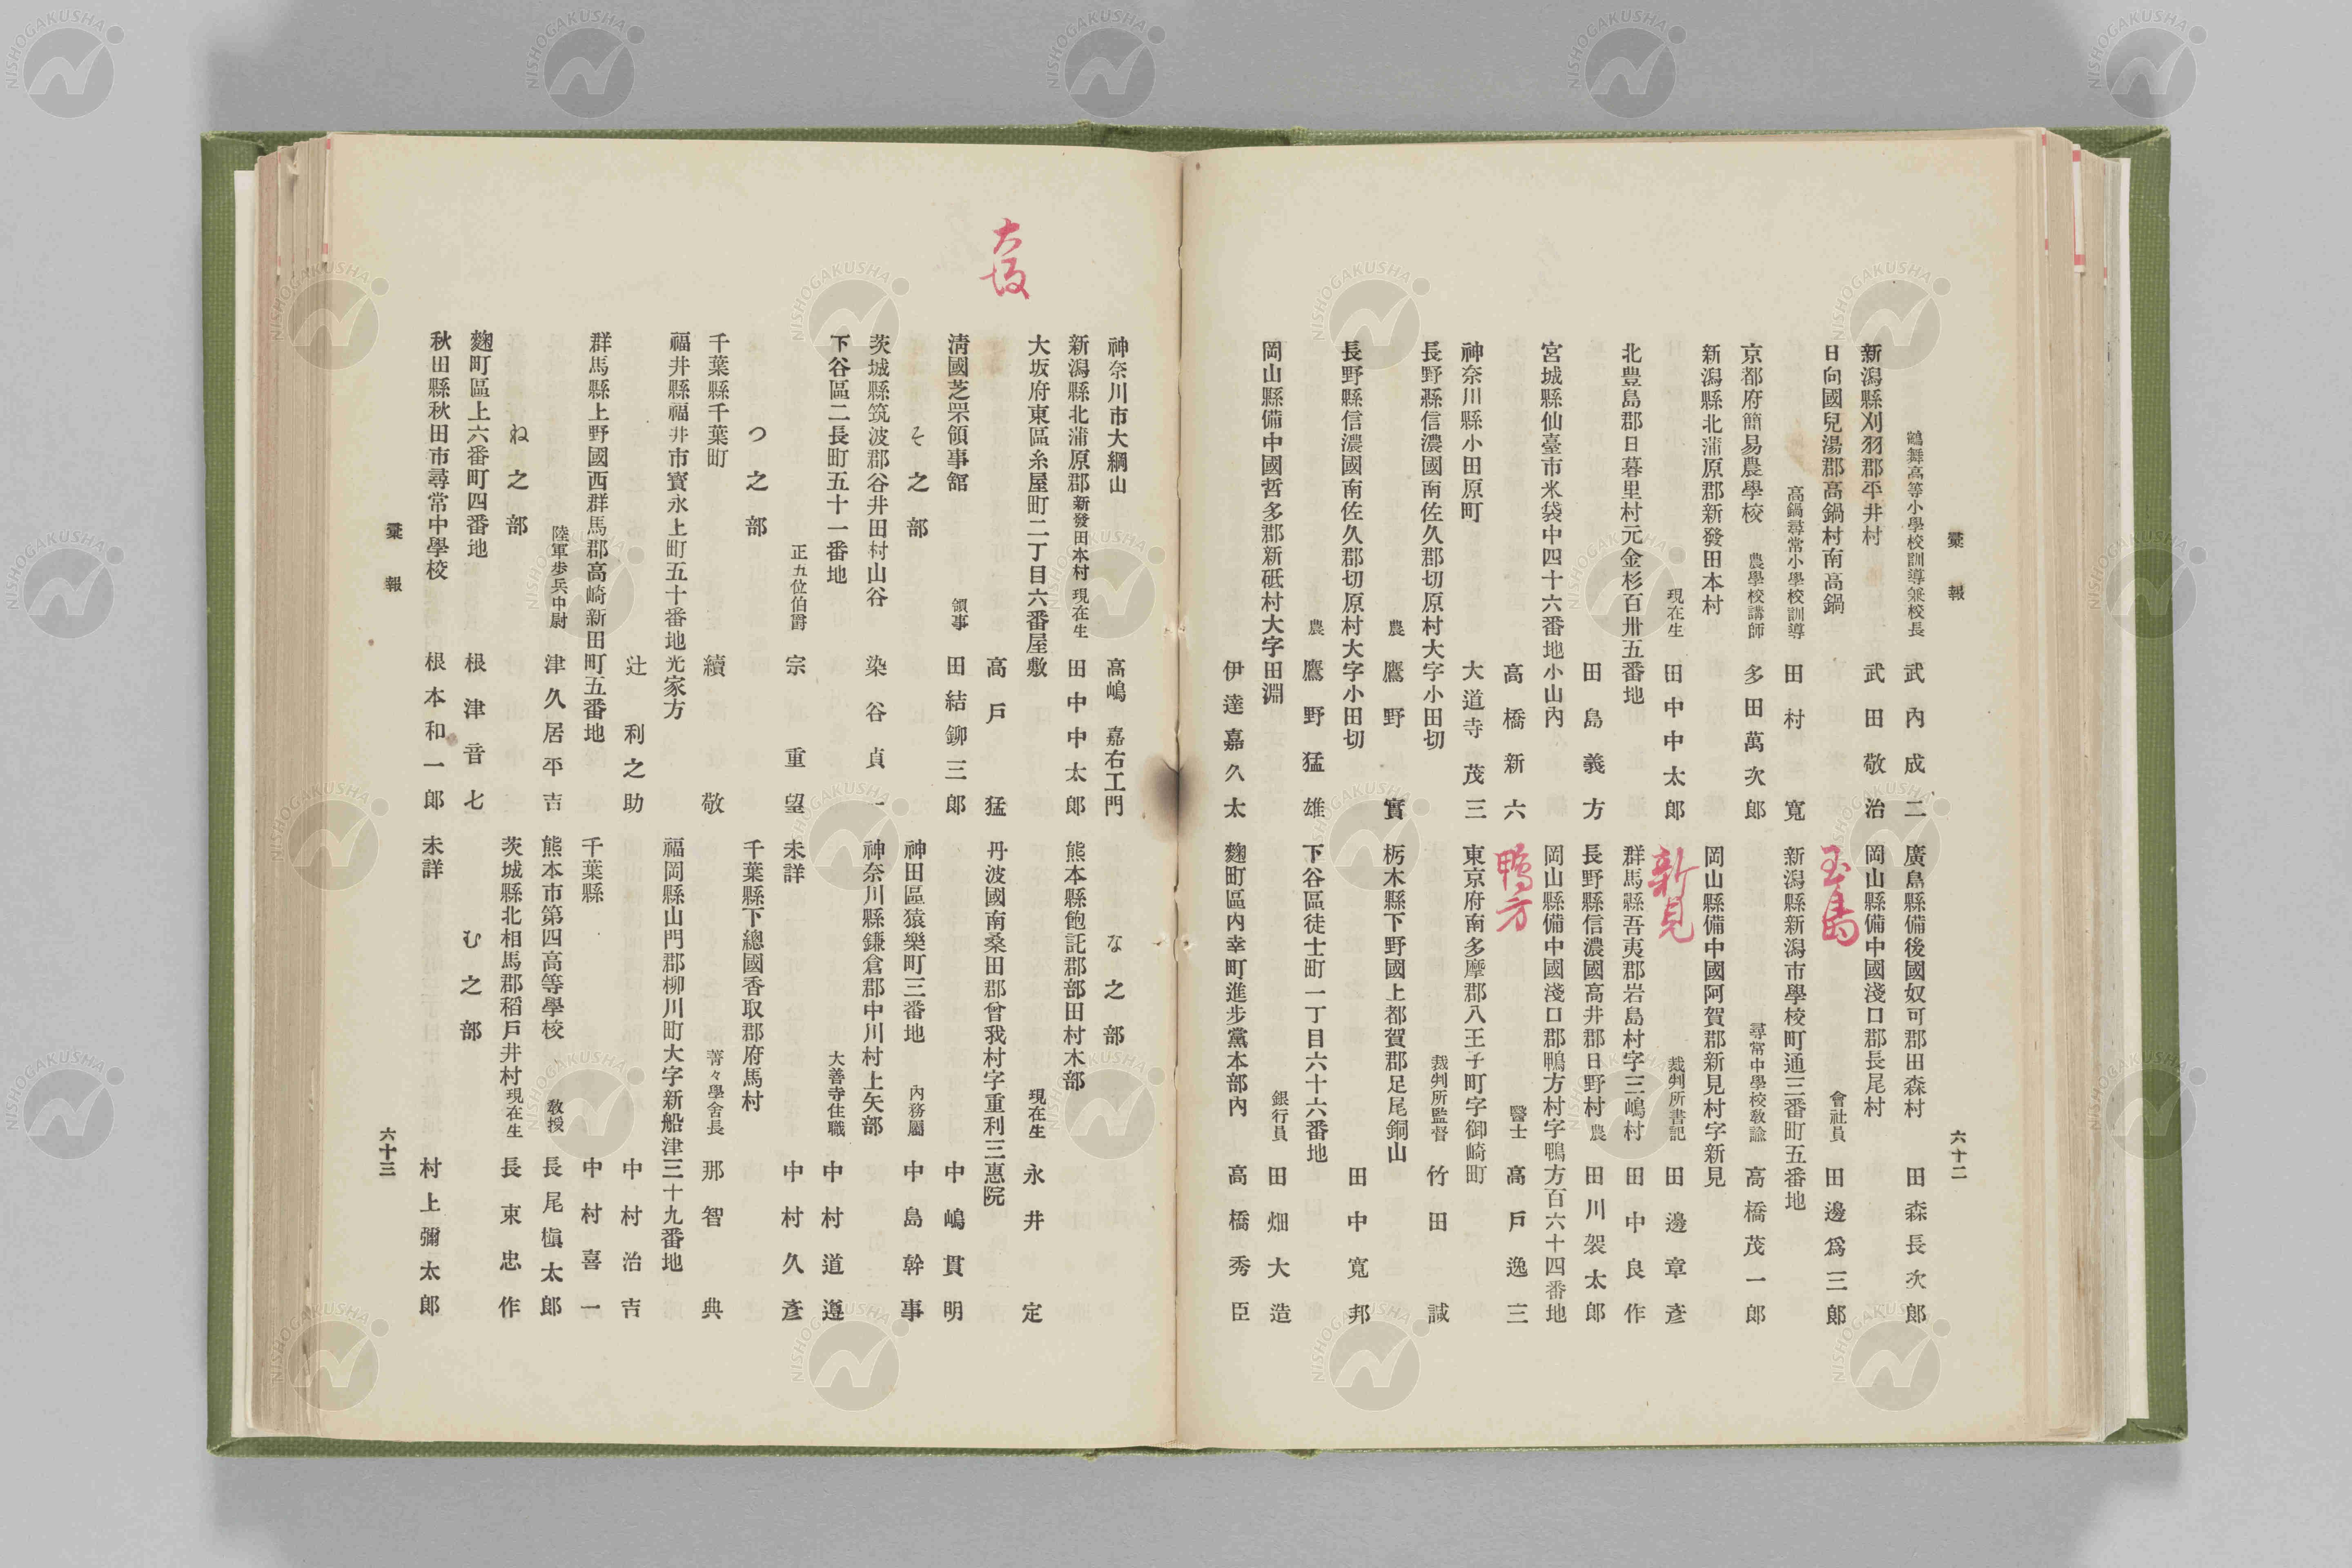 彙報
六十二
鶴舞高等小學校訓導兼校長 武內成二
新潟縣刈羽郡平井村 武田敬治
日向國兒湯郡高鍋村南高鍋
高鍋尋常小學校訓導 田村寬
京都府簡易農學校 農學校講師 多田萬次郎
新潟縣北蒲原郡新發田本村
現在生 田中中太郎
北豊島郡日暮里村元金杉百卅五番地
田島義方
宮城縣仙臺市米袋中四十六番地小山內
高橋新六
神奈川縣小田原町 大道寺茂三
長野縣信濃國南佐久郡切原村大字小田切
農 鷹野實
長野縣信濃國南佐久郡切原村大字小田切
農 鷹野猛雄
岡山縣備中國哲多郡新砥村大字田淵
伊達嘉久太
廣島縣備後國奴可郡田森村 田森長次郎
岡山縣備中國淺口郡長尾村
玉島
會社員 田邊爲三郎
新潟縣新潟市學校町通三番町五番地
尋常中學校敎諭 高橋茂一郎
岡山縣備中國阿賀郡新見村字新見
新見
裁判所書記 田邊章彥
群馬縣吾妻郡岩島村字三嶋村 田中良作
長野縣信濃國高井郡日野村 農 田川袈太郎
岡山縣備中國淺口郡鴨方村字鴨方百六十四番地
鴨方
醫士 高戶逸三
東京府南多摩郡八王子町字御崎町
裁判所監督 竹田誠
栃木縣下野國上都賀郡足尾銅山
田中寬邦
下谷區徒士町一丁目六十六番地
銀行員 田畑大造
麴町區內幸町進步黨本部內 高橋秀臣
神奈川市大綱山 高嶋嘉右工門
新潟縣北蒲原郡新發田本村 現在生 田中中太郎
大坂府東區糸屋町二丁目六番屋敷
大坂
高戶猛
淸國芝罘領事舘 領事 田結鉚三郎
そ之部
茨城縣筑波郡谷井田村山谷 染谷貞一
下谷區二長町五十一番地
正五位伯爵 宗重望
つ之部
千葉縣千葉町 續敬
福井縣福井市寳永上町五十番地光家方
辻利之助
群馬縣上野國西群馬郡高崎新田町五番地
陸軍步兵中尉 津久居平吉
ね之部
麴町區上六番町四番地 根津音七
秋田縣秋田市尋常中學校 根本和一郎
な之部
熊本縣飽託郡部田村木部
現在生 永井定
丹波國南桑田郡曾我村字重利三惠院
中嶋貫明
神田區猿樂町三番地 內務屬 中島幹事
神奈川縣鎌倉郡中川村上矢部
大善寺住職 中村道遵
未詳 中村久彥
千葉縣下總國香取郡府馬村
菁々學舍長 那智典
福岡縣山門郡柳川町大字新船津三十九番地
中村治吉
千葉縣 中村喜一
熊本市第四高等學校 敎授 長尾槇太郎
茨城縣北相馬郡稻戶井村 現在生 長束忠作
む之部
未詳 村上彌太郎
彙報
六十三